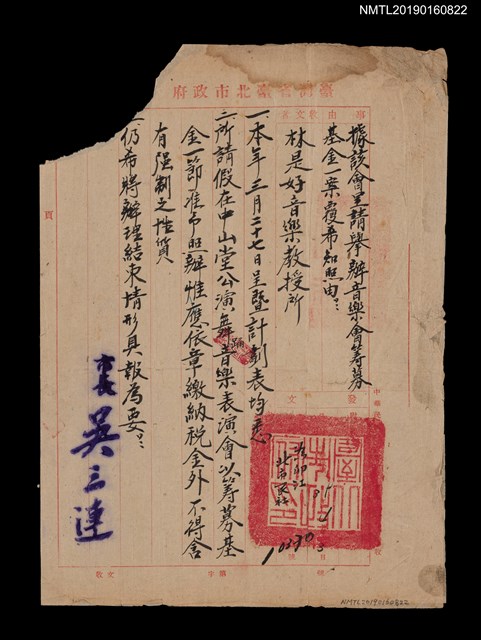 NMTL20190160822
臺灣省臺北市政府
事由
據該會呈請舉辦音樂會籌募
基金一案覆希知照由
林是好音樂教授所
一、本年三月二十七日呈暨計劃表均悉
二、所請假在中山堂公演舞踊音樂表演會以籌募基
金一節准予照辦惟應依章繳納稅金外不得含
有强制之性質
三、仍希將辦理結束情形具報為要
市長 吳三連
發
文
10290
頁
NMTL20190160822